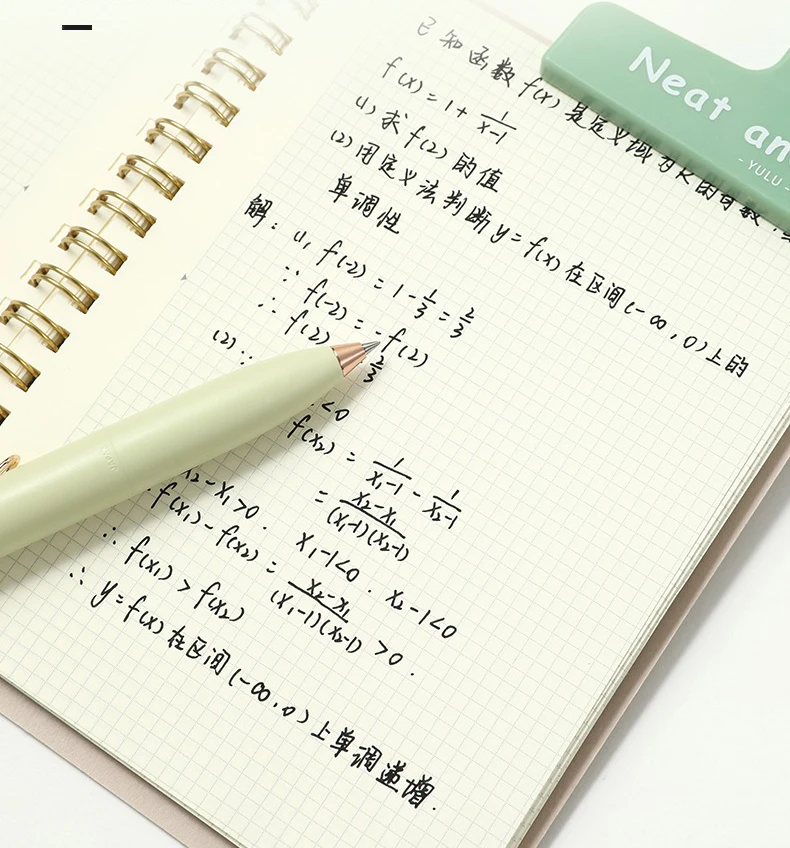 Neat an
- YULU -
已知函数 f(x) 是定义域为R的
f(x) = 1 + 1/(x-1)
(1) 求 f(2) 的值
(2) 用定义法判断 y = f(x) 在区间 (-∞, 0) 上的
单调性
解: (1) f(-2) = 1 - 1/3 = 2/3
∵ f(-2) = -f(2)
∴ f(2) 2/3
(2) ∵ <0
f(x₂) = 1/(x₁-1) - 1/(x₂-1)
= (x₂-x₁)/((x₁-1)(x₂-1))
x₂-x₁>0. x₁-1<0. x₂-1<0
f(x₁) - f(x₂) = (x₂-x₁)/((x₁-1)(x₂-1)) >0.
∴ f(x₁) > f(x₂)
∴ y=f(x) 在区间 (-∞, 0) 上单调递增.